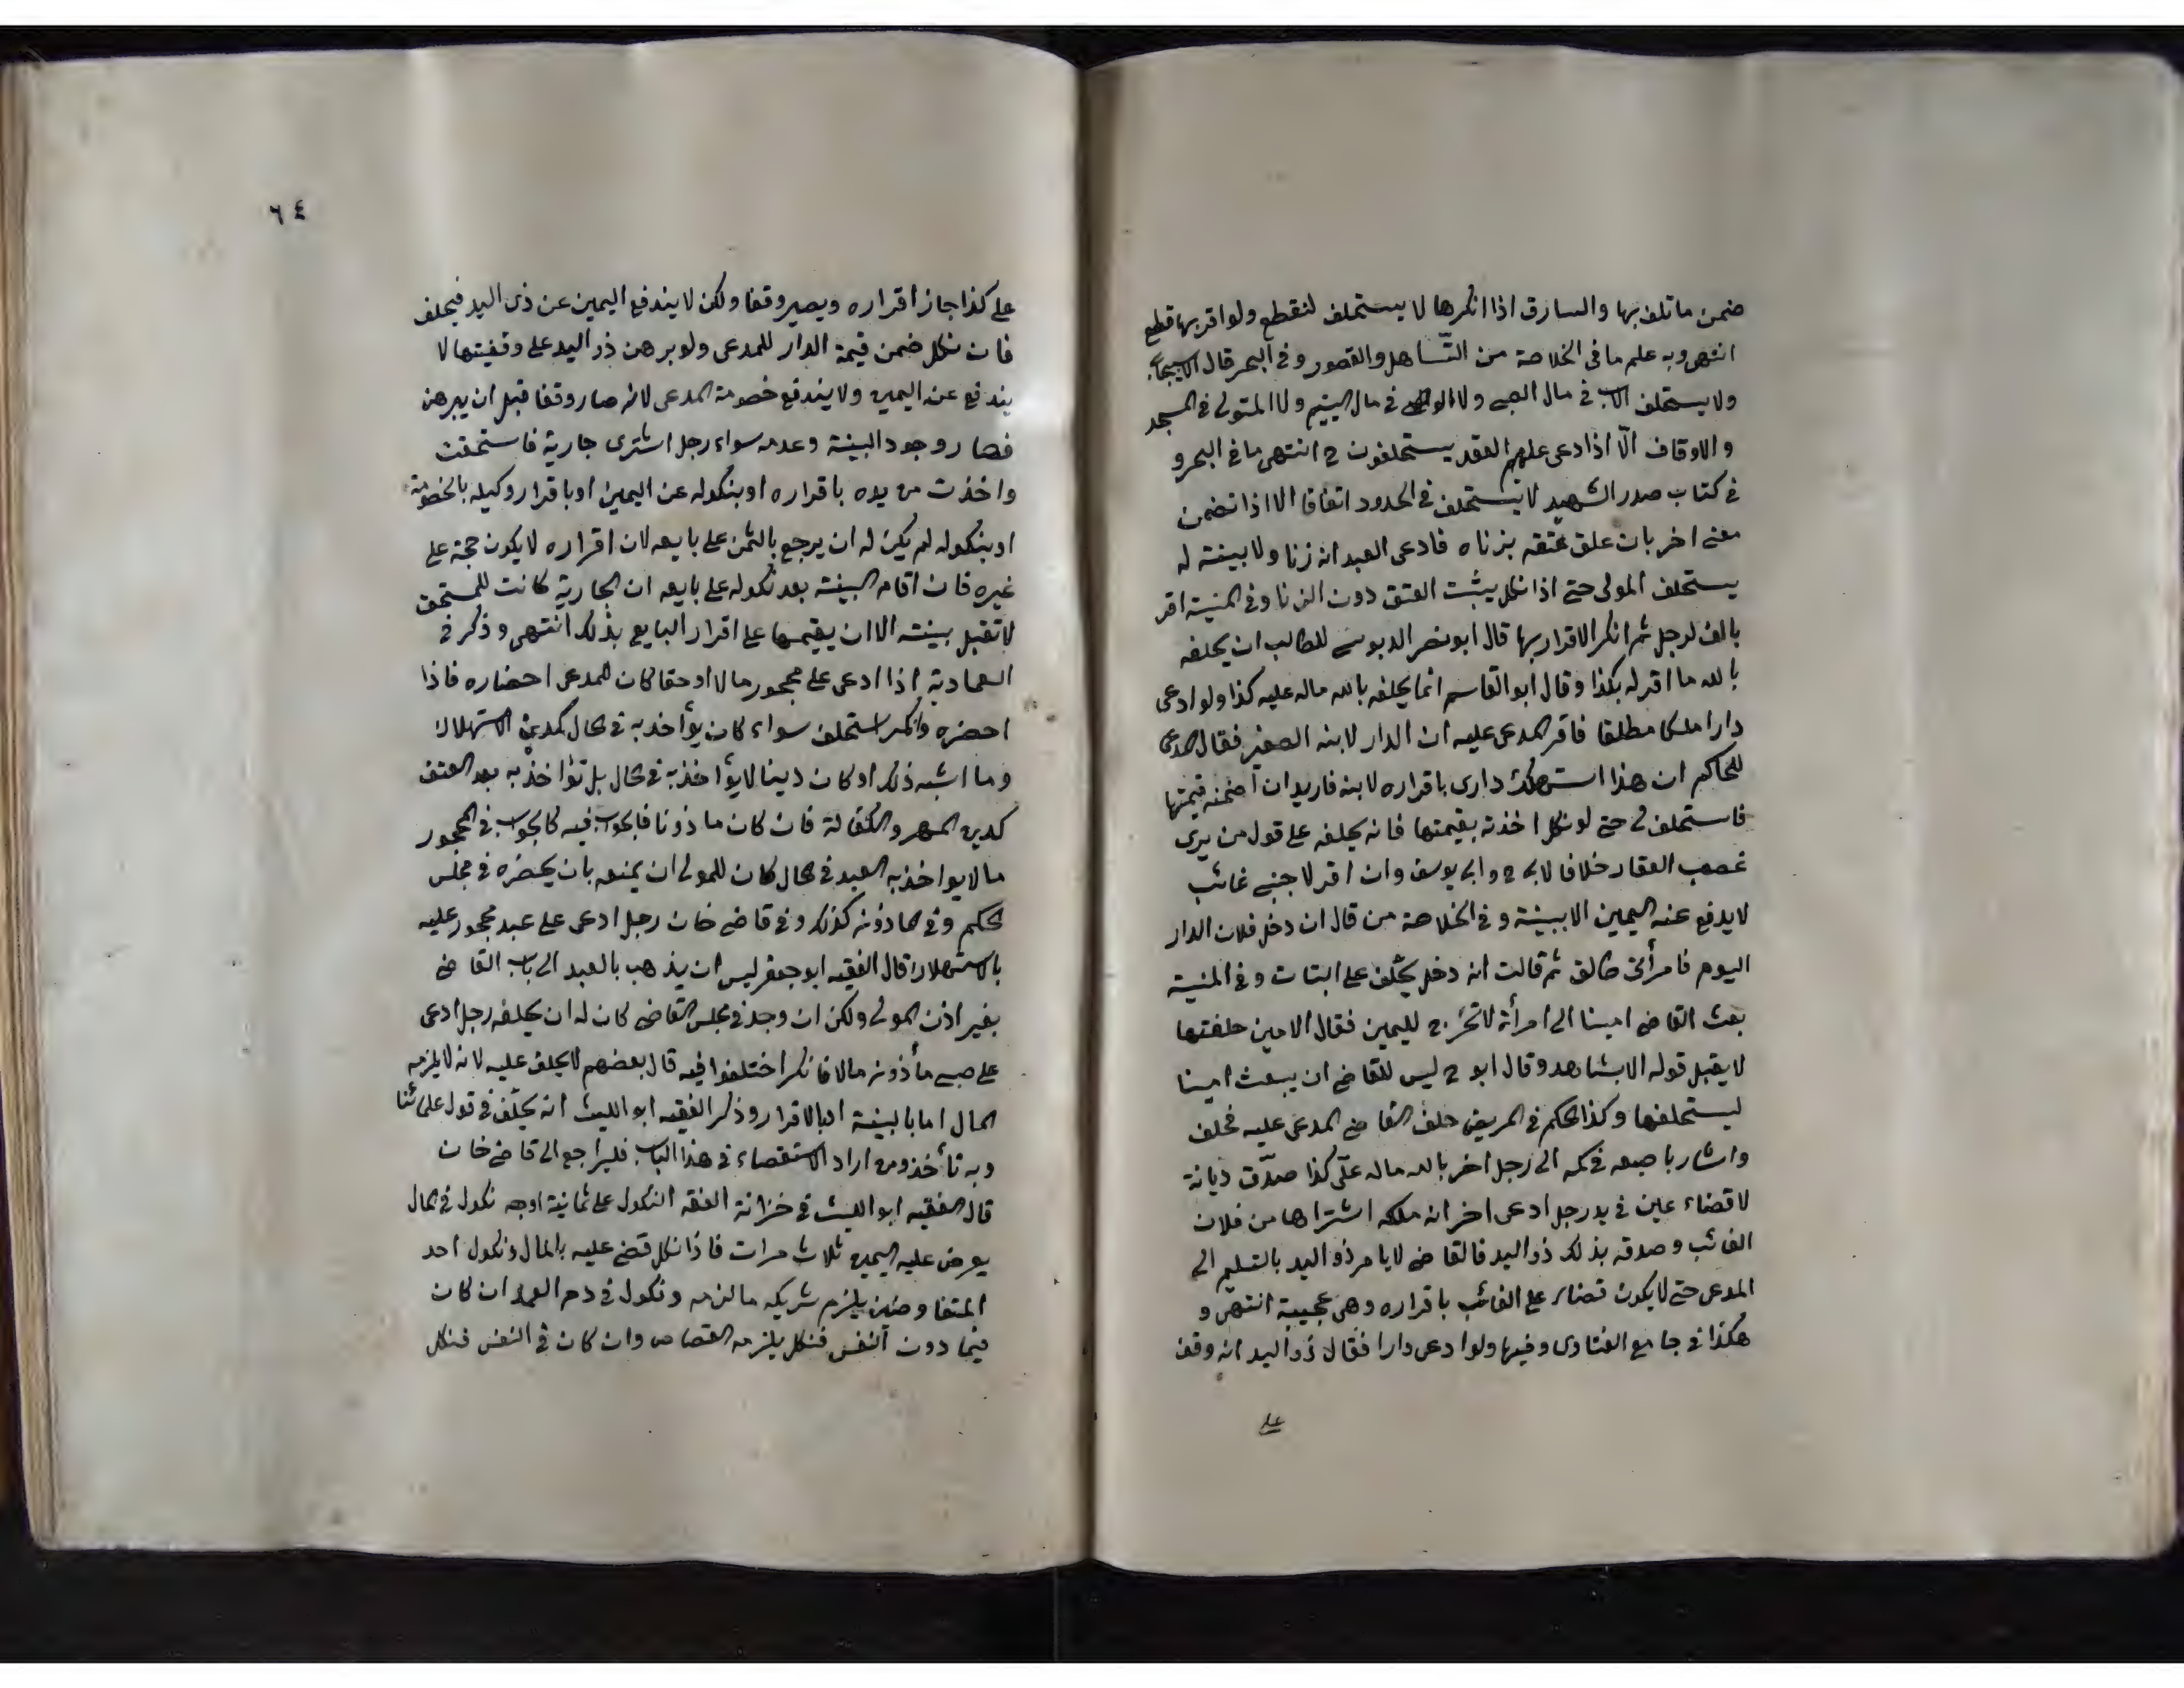 ضمن ما تلف بها والسارق اذا انكرها لا يستحلف لنقطع ولو اقر بها قطع
انتهى وبه علم ما فى الخلاصة من التّساهل والقصور وفى البحر قال الاسبيجابى
ولا يستحلف الاب فى مال الصبى ولا الوصى فى مال اليتيم ولا المتولى فى المسجد
والاوقاف الّا اذا ادعى عليهم العقد يستحلفون ح انتهى ما فى البحر و
فى كتاب صدر الشهيد لا يستحلف فى الحدود اتفاقا الا اذا تضمن
معنى اخر بان علق عتقه بزناه فادعى العبد انه زنا ولا بينة له
يستحلف المولى حتى اذا نكل يثبت العتق دون الزنا وفى المنية اقر
بالف لرجل ثم انكر الاقرار بها قال ابو نصر الدبوسى للطالب ان يحلفه
بالله ما اقر له بكذا وقال ابو القاسم انما يحلفه بالله ماله عليه كذا ولو ادعى
دارا ملكا مطلقا فاقر المدعى عليه ان الدار لابنه الصغير فقال المدعى
للحاكم ان هذا استهلك دارى باقراره لابنه فاريد ان اضمنه قيمتها
فاستحلف لى حتى لو نكل اخذته بقيمتها فانه يحلفه على قول من يرى
غصب العقار خلافا لابى ح وابى يوسف وان اقر لاجنبى غائب
لا يدفع عنه اليمين الا ببينة وفى الخلاصة من قال ان دخل فلان الدار
اليوم فامرأتى طالق ثم قالت انه دخل يحلّف على البتات وفى المنية
بعث القاضى امينا الى امرأة لا تخرج لليمين فقال الامين حلفتها
لا يقبل قوله الا بشاهد وقال ابو ح ليس للقاضى ان يبعث امينا
ليستحلفها وكذا الحكم فى المريض حلف القاضى المدعى عليه فحلف
واشار باصبعه فى كمه الى رجل اخر بالله ماله علىّ كذا صدّق ديانة
لا قضاء عين فى يد رجل ادعى اخر انه ملكه اشتراها من فلان
الغائب وصدقه بذلك ذو اليد فالقاضى لا يامر ذو اليد بالتسليم الى
المدعى حتى لا يكون قضاء على الغائب باقراره وهى عجيبة انتهى و
هكذا فى جامع الفتاوى وفيها ولو ادعى دارا فقال ذو اليد انه وقف
على
٦٤
على كذا جاز اقراره ويصير وقفا ولكن لا يندفع اليمين عن ذى اليد فيحلف
فان نكل ضمن قيمة الدار للمدعى ولو برهن ذو اليد على وقفيتها لا
يندفع عنه اليمين ولا يندفع خصومة المدعى لانه صار وقفا قبل ان يبرهن
فصار وجود البينة وعدمه سواء رجل اشترى جارية فاستحقت
واخذت من يده باقراره او بنكوله عن اليمين او باقرار وكيله بالخصومة
او بنكوله لم يكن له ان يرجع بالثمن على بايعه لان اقراره لا يكون حجة على
غيره فان اقام البينة بعد نكوله على بايعه ان الجارية كانت للمستحق
لا تقبل بينته الا ان يقيمها على اقرار البايع بذلك انتهى وذكر فى
العمادية اذا ادعى على محجور مالا او حقا كان للمدعى احضاره فاذا
احضره وانكر استحلف سواء كان يؤاخذ به فى الحال كدين الاستهلاك
وما اشبه ذلك او كان دينا لا يؤاخذ به فى الحال بل يؤاخذ به بعد العتق
كدين المهر والكفالة فان كان ماذونا فالجواب فيه كالجواب فى المحجور
ما لا يواخذ به العبد فى الحال كان للمولى ان يمنعه بان يحضره فى مجلس
الحكم وفى الماذون كذلك وفى قاضى خان رجل ادعى على عبد محجور عليه
بالاستهلاك قال الفقيه ابو جعفر ليس ان يذهب بالعبد الى باب القاضى
بغير اذن المولى ولكن ان وجد فى مجلس القاضى كان له ان يحلفه رجل ادعى
على صبى مأذون مالا فانكر اختلفوا فيه قال بعضهم لا يحلف عليه لانه لا يلزمه
المال اما بالبينة او بالاقرار وذكر الفقيه ابو الليث انه يحلّف فى قول علمائنا
وبه نأخذ ومن اراد الاستقصاء فى هذا الباب فليراجع الى قاضى خان
قال الفقيه ابو الليث فى خزانة الفقه النكول على ثمانية اوجه نكول فى المال
يعرض عليه اليمين ثلاث مرات فاذا نكل قضى عليه بالمال ونكول احد
المتفاوضين يلزم شريكه ما لزمه ونكول فى دم العمد ان كان
فيما دون النفس فنكل يلزمه القصاص وان كان فى النفس فنكل